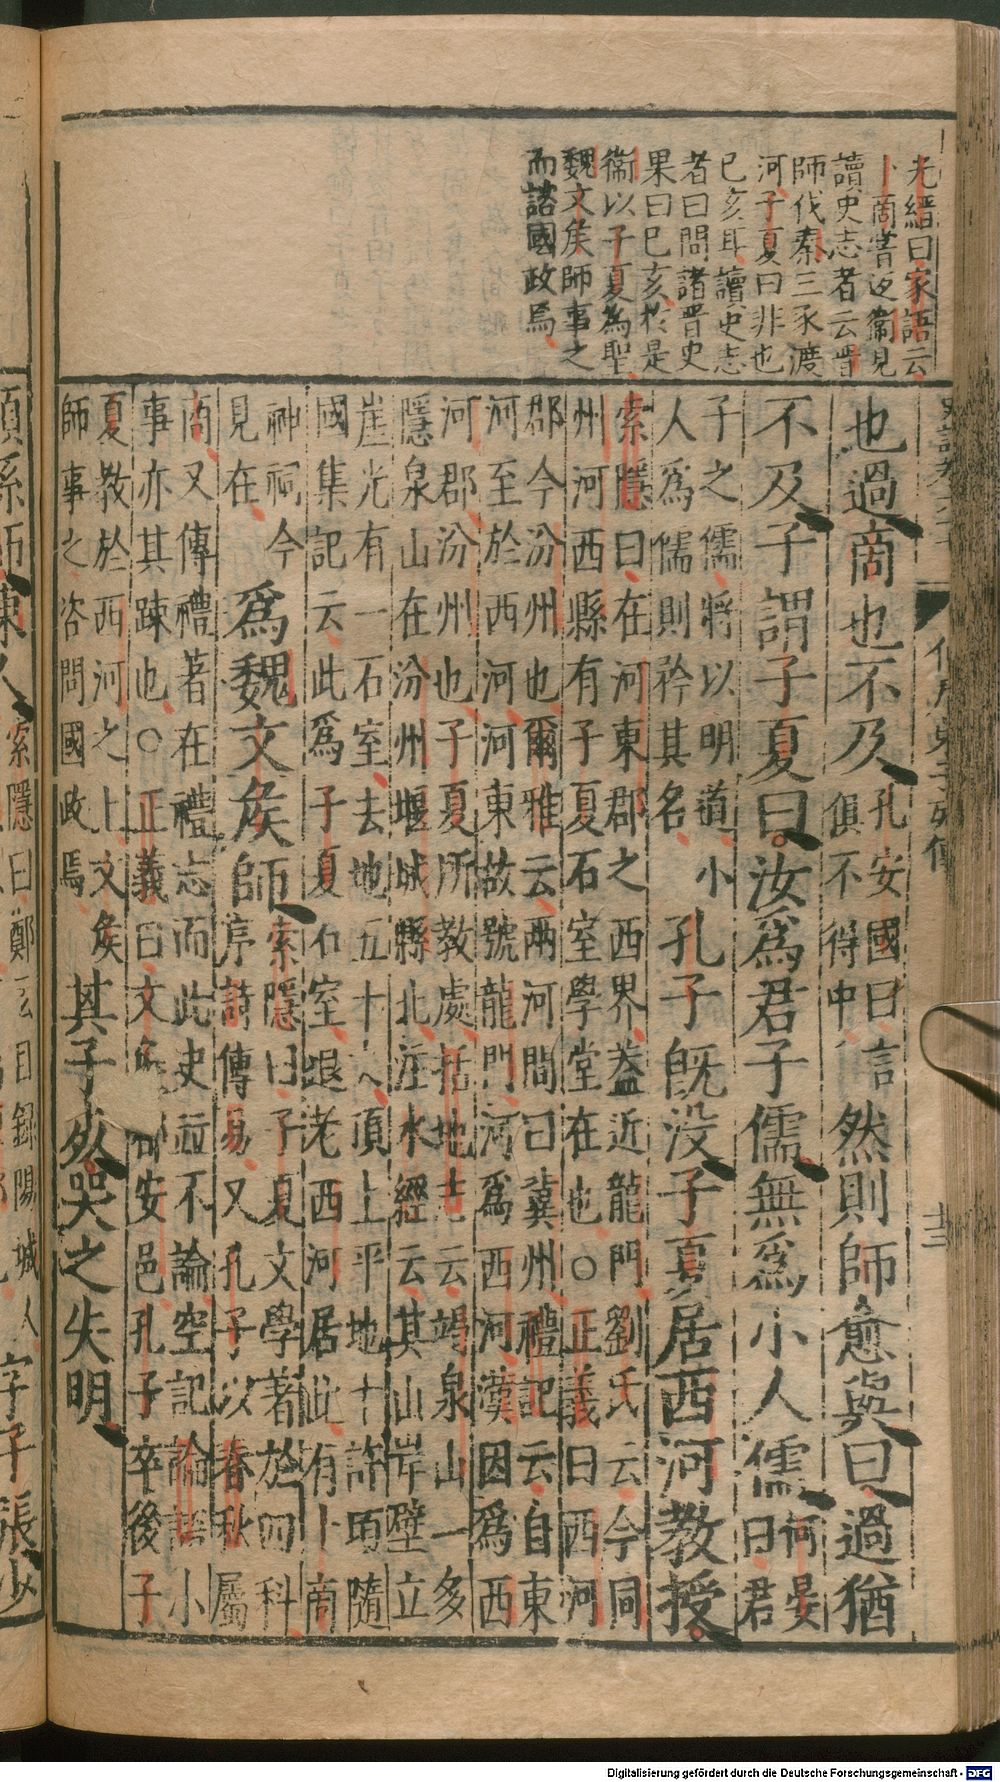 光縉曰家語云
卜商嘗返衞見
讀史志者云晋
師伐秦三豕渡
河子夏曰非也
已亥耳讀史志
者曰問諸晋史
果曰已亥於是
衞以子夏為聖
魏文矦師事之
而諮國政焉
十三
也過商也不及
孔安國曰言
俱不得中
然則師愈與曰過猶
不及子謂子夏曰汝爲君子儒無爲小人儒
何晏
曰君
子之儒將以明道小
人爲儒則矜其名
孔子旣没子夏居西河教授
索隱曰在河東郡之西界葢近龍門劉氏云今同
州河西縣有子夏石室學堂在也○正義曰西河
郡今汾州也爾雅云兩河間曰冀州禮記云自東
河至於西河河東故號龍門河爲西河漢因爲西
河郡汾州也子夏所教處括地志云謁泉山一多
隱泉山在汾州堰城縣北注水經云其山岸壁立
崖光有一石室去地五十丈頂上平地十許頃隨
國集記云此爲子夏石室退老西河居此有卜商
神祠今
見在
爲魏文矦師
索隱曰子夏文學著於四科
序詩傳易又孔子以春秋屬
商又傳禮著在禮志而此史竝不論空記論語小
事亦其踈也○正義曰文矦安邑孔子卒後子
夏教於西河之上文矦
師事之咨問國政焉
其子死哭之失明
顓孫師陳人
索隱曰鄭玄目録陽城人
字子張少
Digitalisierung gefördert durch die Deutsche Forschungsgemeinschaft - DFG